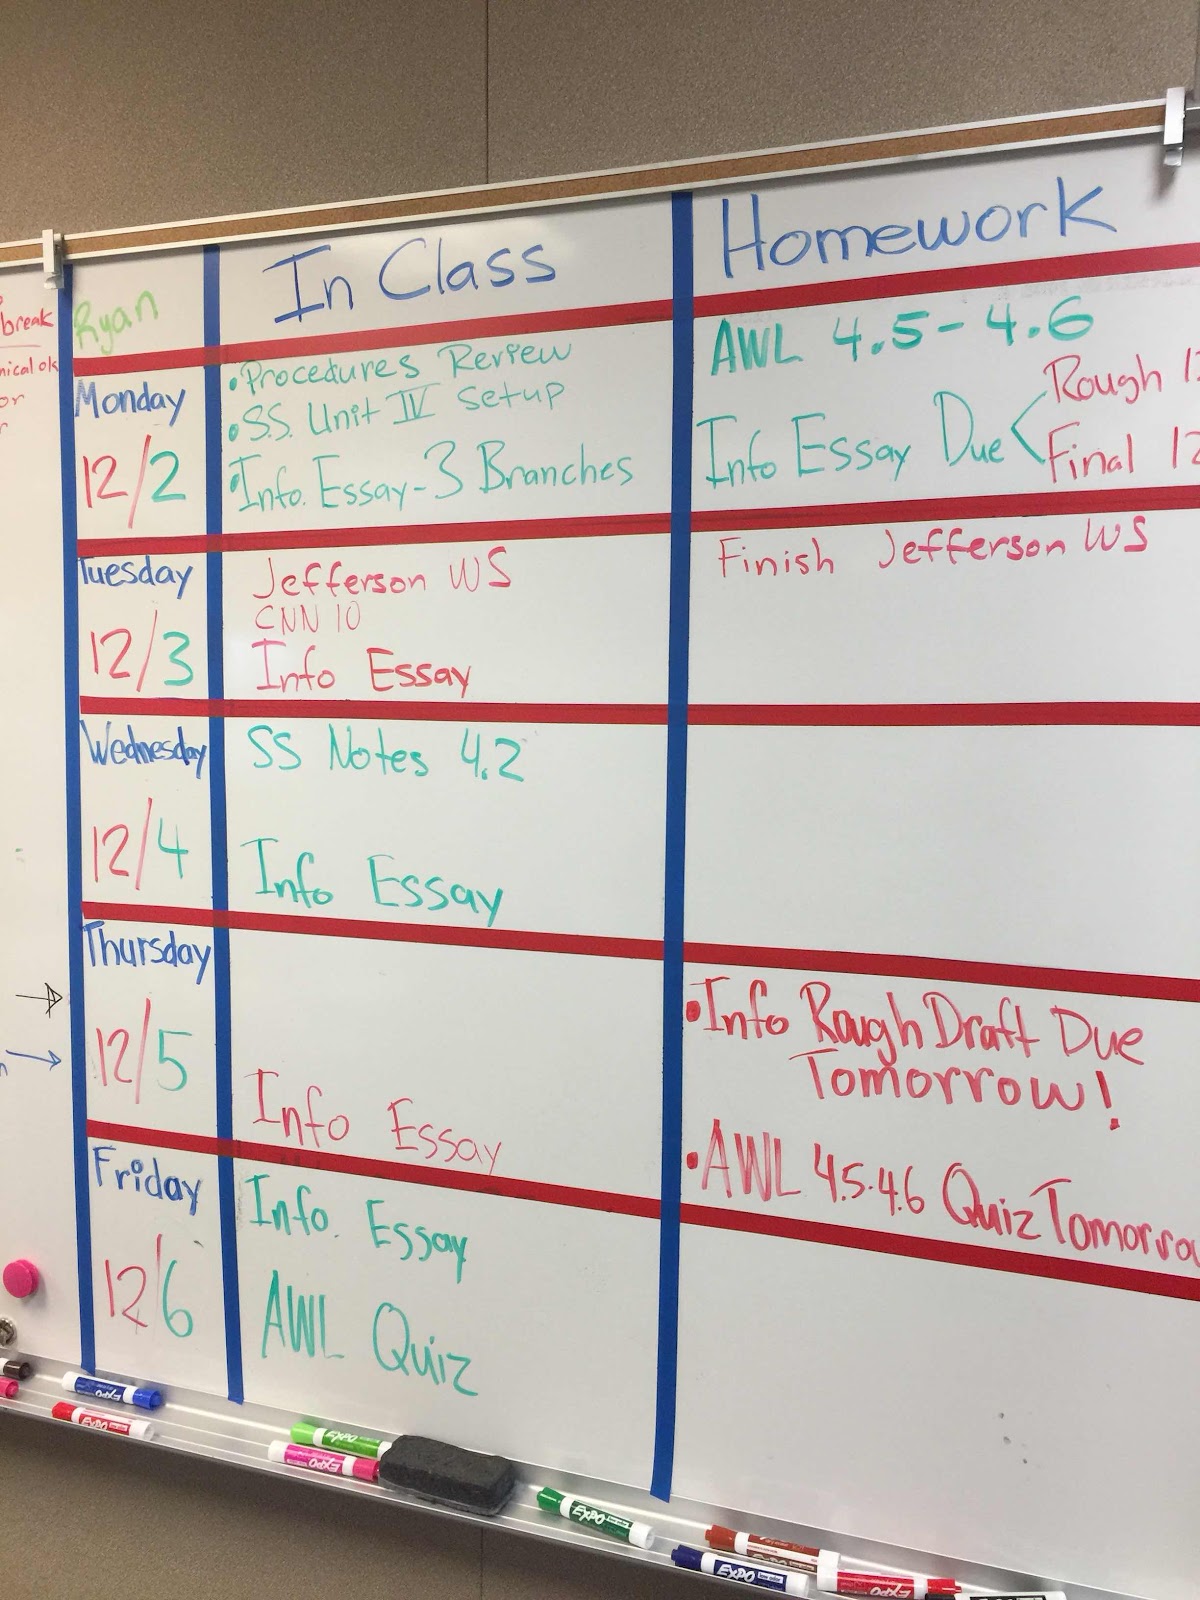 break
nical ok
or
r
Ryan
In Class
Homework
Monday
12/2
• Procedures Review
• S.S. Unit IV Setup
• Info. Essay - 3 Branches
AWL 4.5 - 4.6
Info Essay Due < Rough 12
Final 12
Tuesday
12/3
Jefferson WS
CNN 10
Info Essay
Finish Jefferson WS
Wednesday
12/4
SS Notes 4.2
Info Essay
Thursday
12/5
Info Essay
• Info Rough Draft Due
Tomorrow!
• AWL 4.5-4.6 Quiz Tomorro
Friday
12/6
Info. Essay
AWL Quiz
EXPO
EXPO
EXPO
EXPO
EXPO
EXPO
EXPO